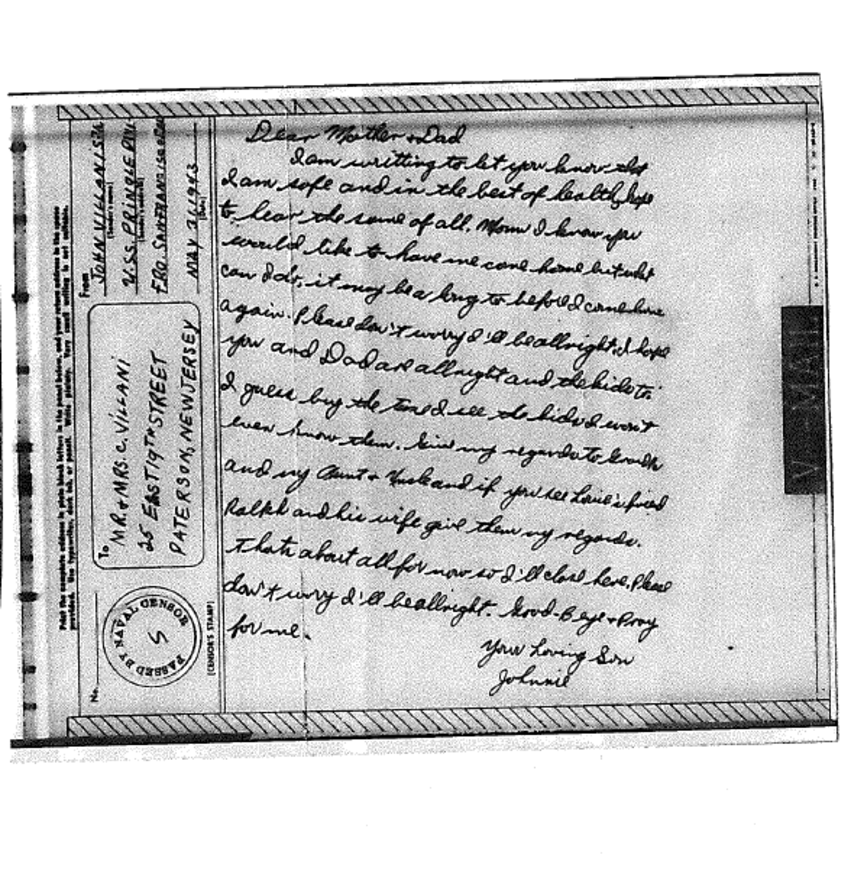 Print the complete address in plain block letters in the panel below, and your return address in the space
provided. Use typewriter, dark ink, or pencil. Write plainly. Very small writing is not suitable.
No.
To
MR. & MRS. C. VILLANI
25 EAST 19TH STREET
PATERSON, NEW JERSEY
From
JOHN VILLANI
(Sender's name)
U.S.S. PRINGLE
(Sender's address)
F.P.O. SANFRANSISCO
MAY
(Date)
PASSED BY NAVAL CENSOR
(CENSOR'S STAMP)
Dear Mother & Dad
I am writting to let you know that
I am safe and in the best of health, hope
to hear the same of all. Mom I know you
would like to have me come home but what
can I do, it may be a long to before I come home
again. Please don't worry I'll be allright, I hope
you and Dad are allright and the kids to
I guess buy the time I see the kids I won't
even know them. Give my regards to
and my Aunt & Husband if you see friend
Ralph and his wife give them my regards.
thats about all for now so I'll close here. Please
don't worry I'll be allright. Good-Beye & Pray
for me.
Your Loving Son
Johnnie
V-MAIL